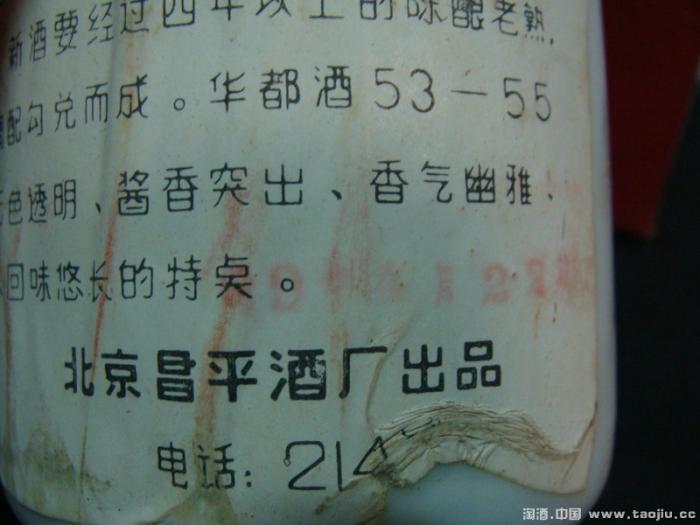 新酒要经过四年以上的陈酿老熟,
配勾兑而成。华都酒53—55
色透明、酱香突出、香气幽雅、
回味悠长的特点。
北京昌平酒厂出品
电话:214
淘酒.中国 www.taojiu.cc